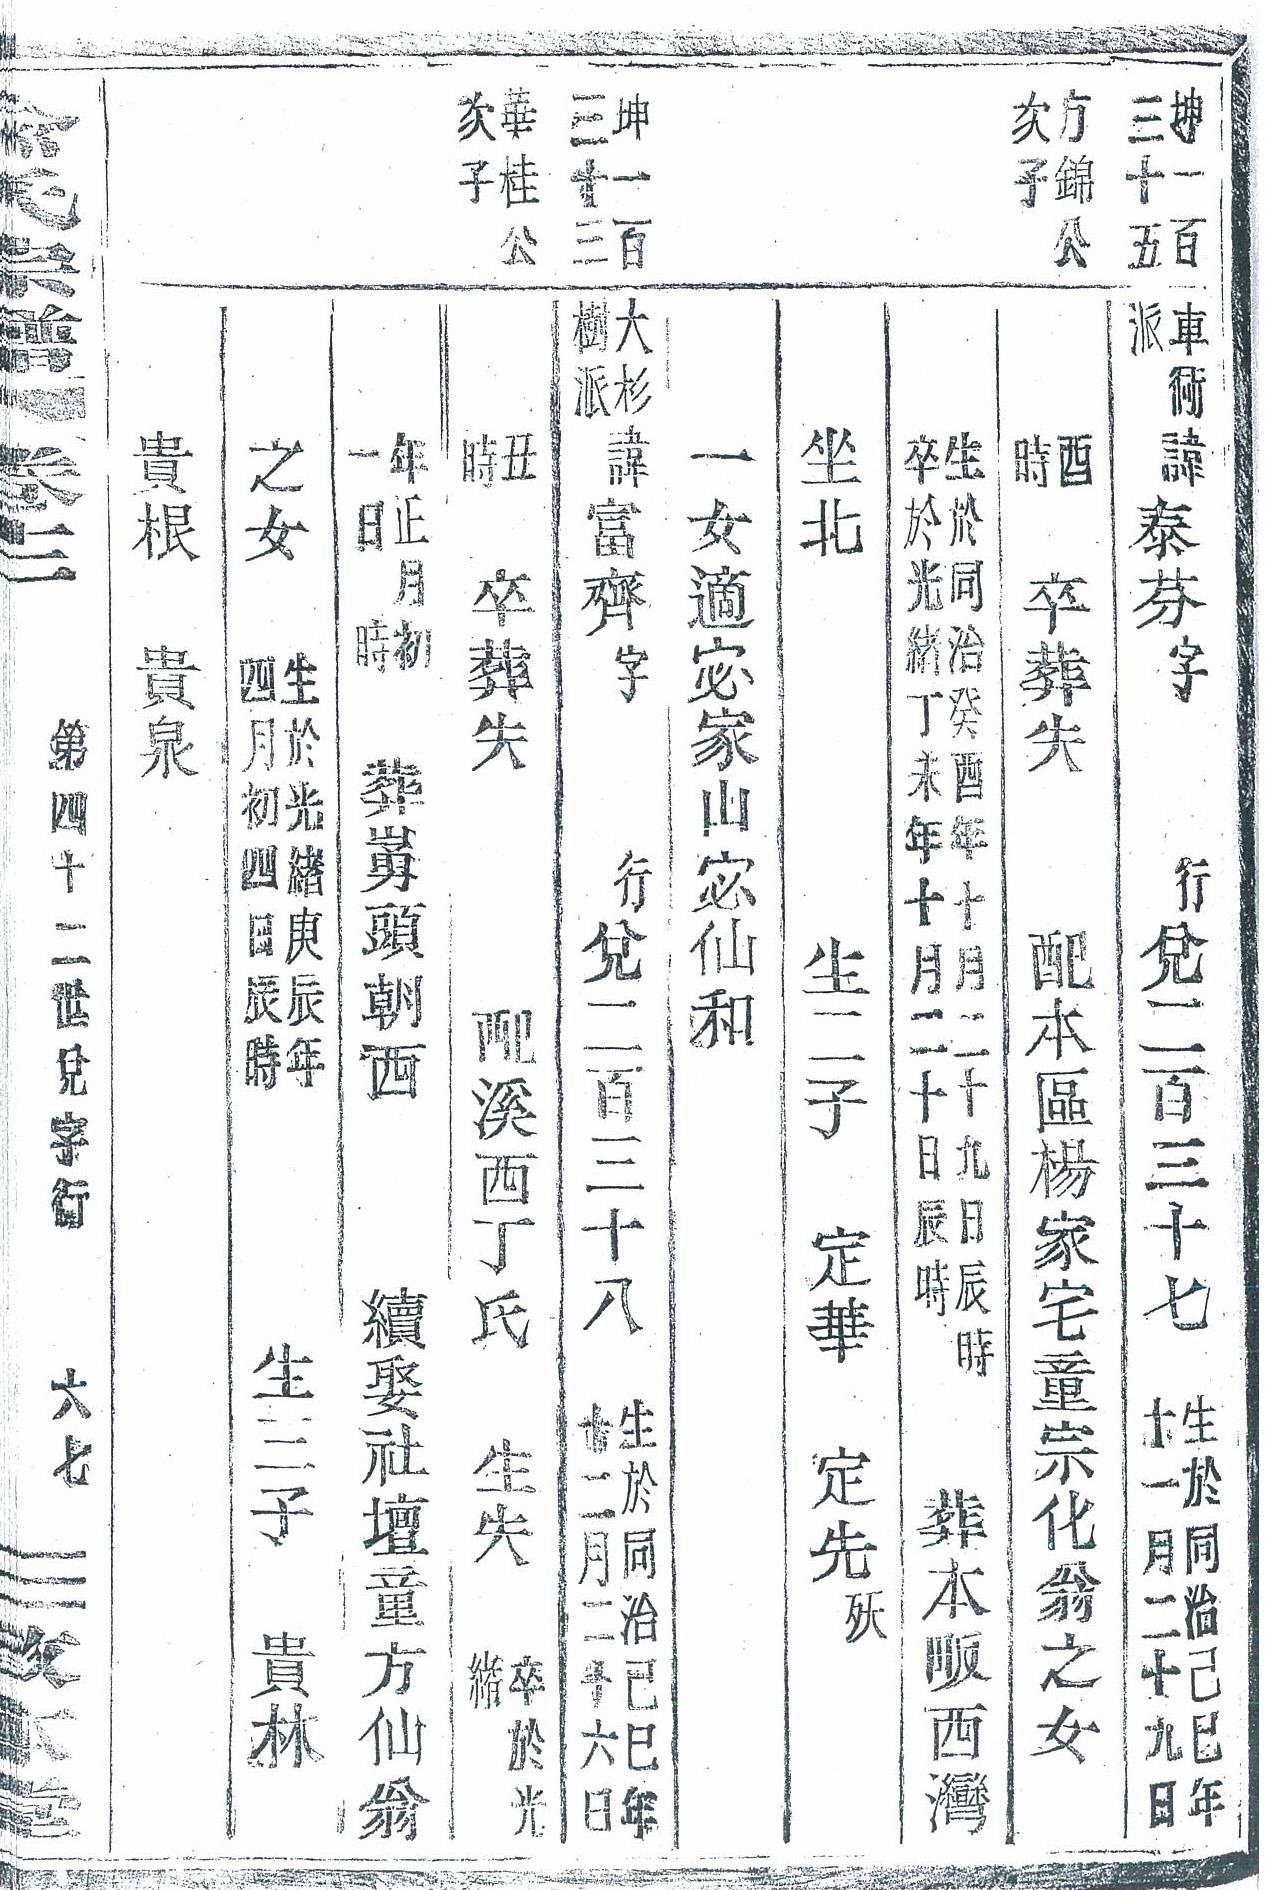 坤一百三十五
方錦公次子
車衖派諱泰芬字 行兌二百三十七 生於同治己巳年十一月二十九日
酉時 卒葬失 配本區楊家宅童宗化翁之女
生於同治癸酉年十月二十九日辰時卒於光緒丁未年十月二十日辰時 葬本畈西灣
坐北 生二子 定華 定先殀
一女適宓家山宓仙和
坤一百三十三
華桂公次子
大杉樹派諱富齊字 行兌二百三十八 生於同治己巳年十二月二十六日
丑時 卒葬失 配溪西丁氏 生失 卒於光緒
年正月初一日 時 葬 頭朝西 續娶社壇童方仙翁
之女 生於光緒庚辰年四月初四日辰時 生三子 貴林
貴根 貴泉
宗譜 卷三
第四十二世兌字行 六七